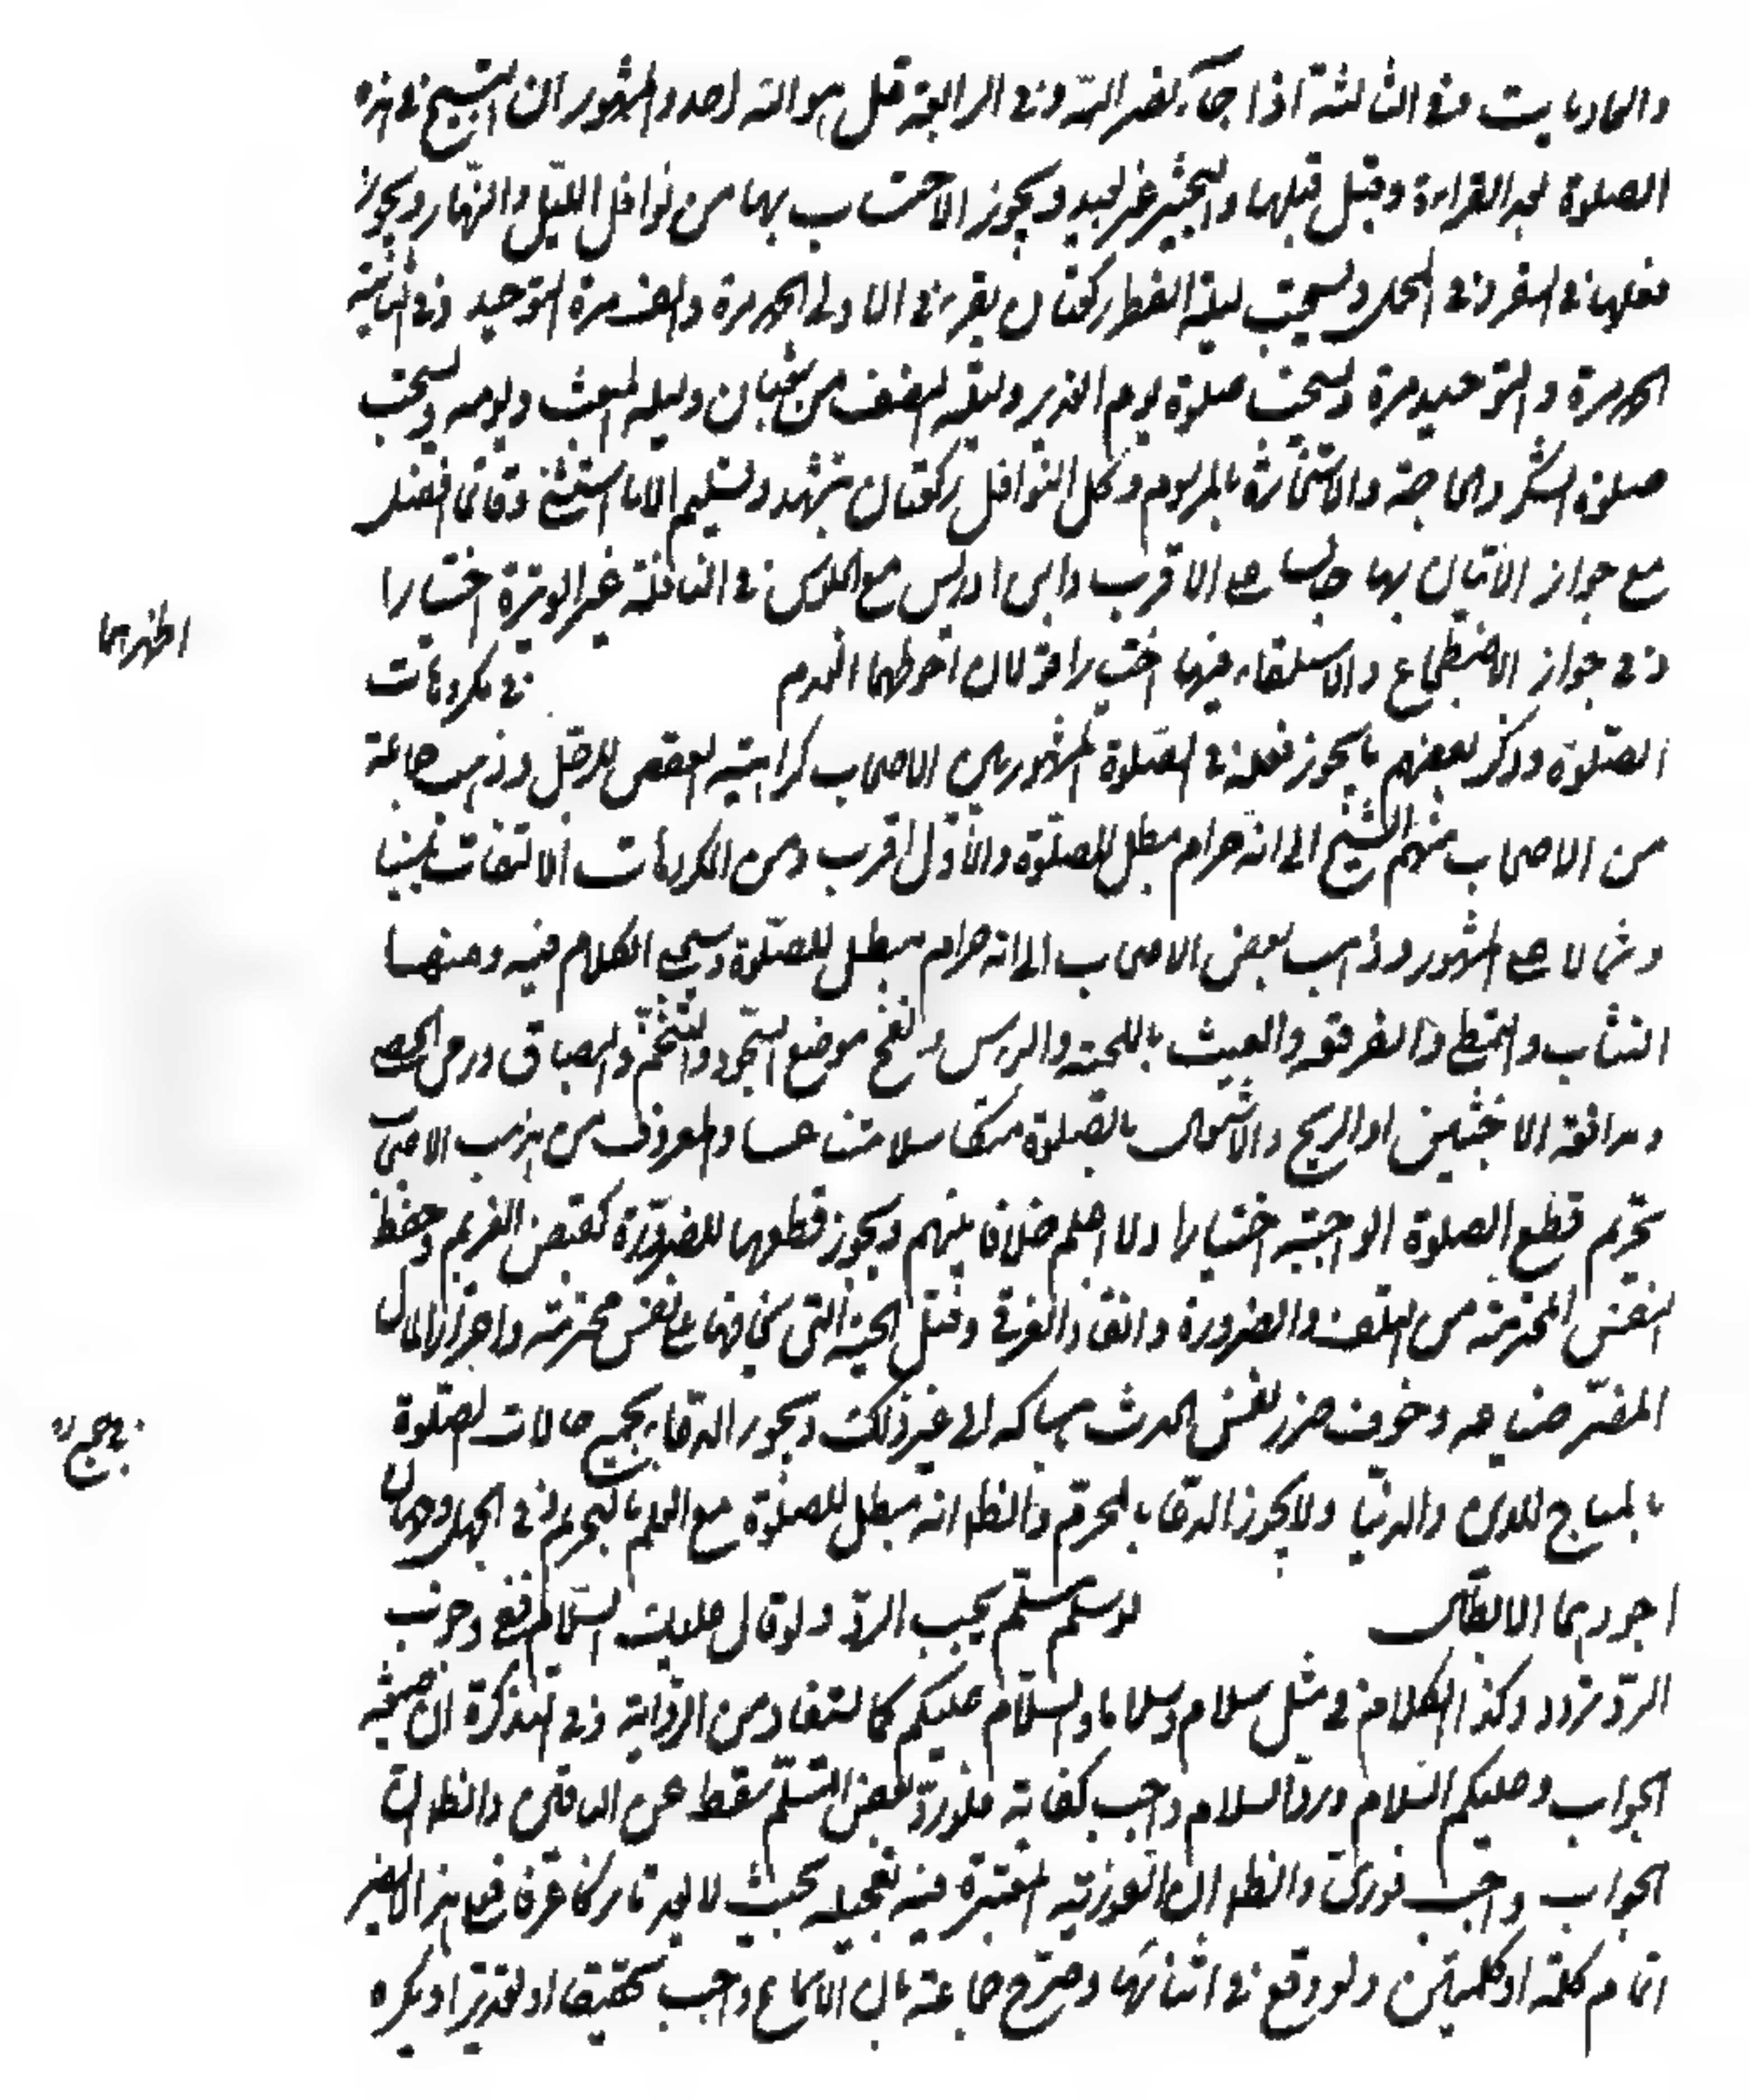 والعاديات وفي الثالثة اذا جآء نصر الله وفي الرابعة قل هو الله احد والمشهور ان التسبيح في هذه
الصلوة بعد القراءة وقيل قبلها والتخيير غير بعيد ويجوز الاحتساب بها من نوافل الليل والنهار ويجوز
فعلها في السفر وفي المحمل ويستحب ليلة الفطر ركعتان يقرء في الاولى الحمد مرة والف مرة التوحيد وفي الثانية
الحمد مرة والتوحيد مرة ويستحب صلوة يوم الغدير وليلة النصف من شعبان وليلة المبعث ويومه ويستحب
صلوة الشكر والحاجة والاستخارة بالمرسوم وكل النوافل ركعتان بتشهد وتسليم الا ما استثنى وقائما افضل
مع جواز الاتيان بها جالسا على الاقرب وابن ادريس منع الجلوس في النافلة غير الوتيرة اختيارا
وفي جواز الاضطجاع والاستلقاء فيها اختيارا قولان احوطهما العدم في مكروهات
اظهرهما
الصلوة وذكر بعضهم ما يجوز فعله في الصلوة المشهور بين الاصحاب كراهية العقص للرجل وذهب جماعة
من الاصحاب منهم الشيخ الى انه حرام مبطل للصلوة والاول اقرب ومن المكروهات الالتفات يمينا
وشمالا على المشهور وذهب بعض الاصحاب الى انه حرام مبطل للصلوة وسيجئ الكلام فيه ومنها
التثأب والتمطي والفرقعة والعبث باللحية والراس ونفخ موضع السجود والتنخم والبصاق ورمي الحصى
ومدافعة الاخبثين او الريح والاشتغال بالصلوة متكاسلا متناعسا والمعروف من مذهب الاصحاب
تحريم قطع الصلوة الواجبة اختيارا ولا اعلم خلافا بينهم ويجوز قطعها للضرورة كقبض الغريم وحفظ
النفس المحترمة من التلف والضرورة وانقاذ الغرقى وقتل الحية التي يخافها على نفس محترمة واحراز المال
المضر ضياعه وخوف ضرر لنفس الحدث بامساكه الى غير ذلك ويجوز الدعاء بجميع حالات الصلوة
في جميع
بالمباح للدين والدنيا ولا يجوز الدعاء بالمحرم والظ انه مبطل للصلوة مع العلم بالتحريم وفي الجهل وجهان
اجودهما الابطال لو سلم مسلم يجب الرد ولو قال عليك السلام ففي وجوب
الرد تردد وكذا الكلام في مثل سلام وسلاما والسلام عليكم كما يستفاد من الرواية وفي التذكرة ان صيغة
الجواب وعليكم السلام ورد السلام واجب كفاية فلو رد بعض المسلم سقط عن الباقين والظ ان
الجواب واجب فوري والظ ان الفورية المعتبرة فيه تعجيله بحيث لا يعد تاركا عرفا فعلى هذا لا يضر
اتمام كلمة او كلمتين ولو وقع في اثنائها وصرح جماعة بان الاسماع واجب تحقيقا او تقديرا ويكره